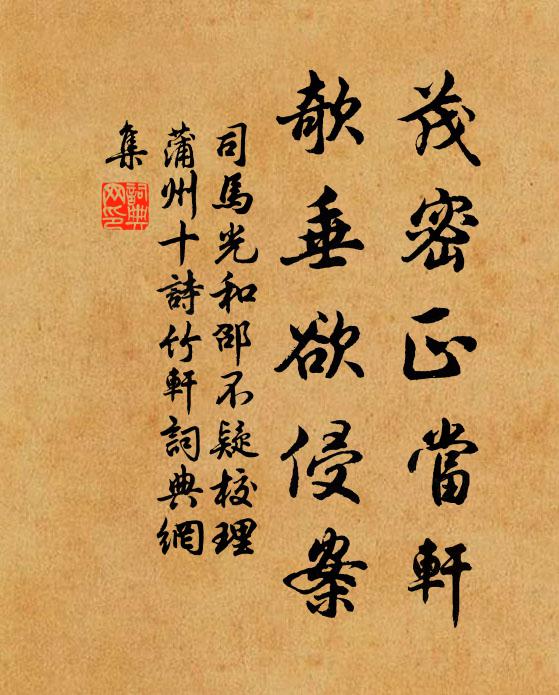 茂密正當軒
欹垂欲侵案
司馬光和邵不疑校理
蒲州十詩竹軒詞典網
集
詞典網印